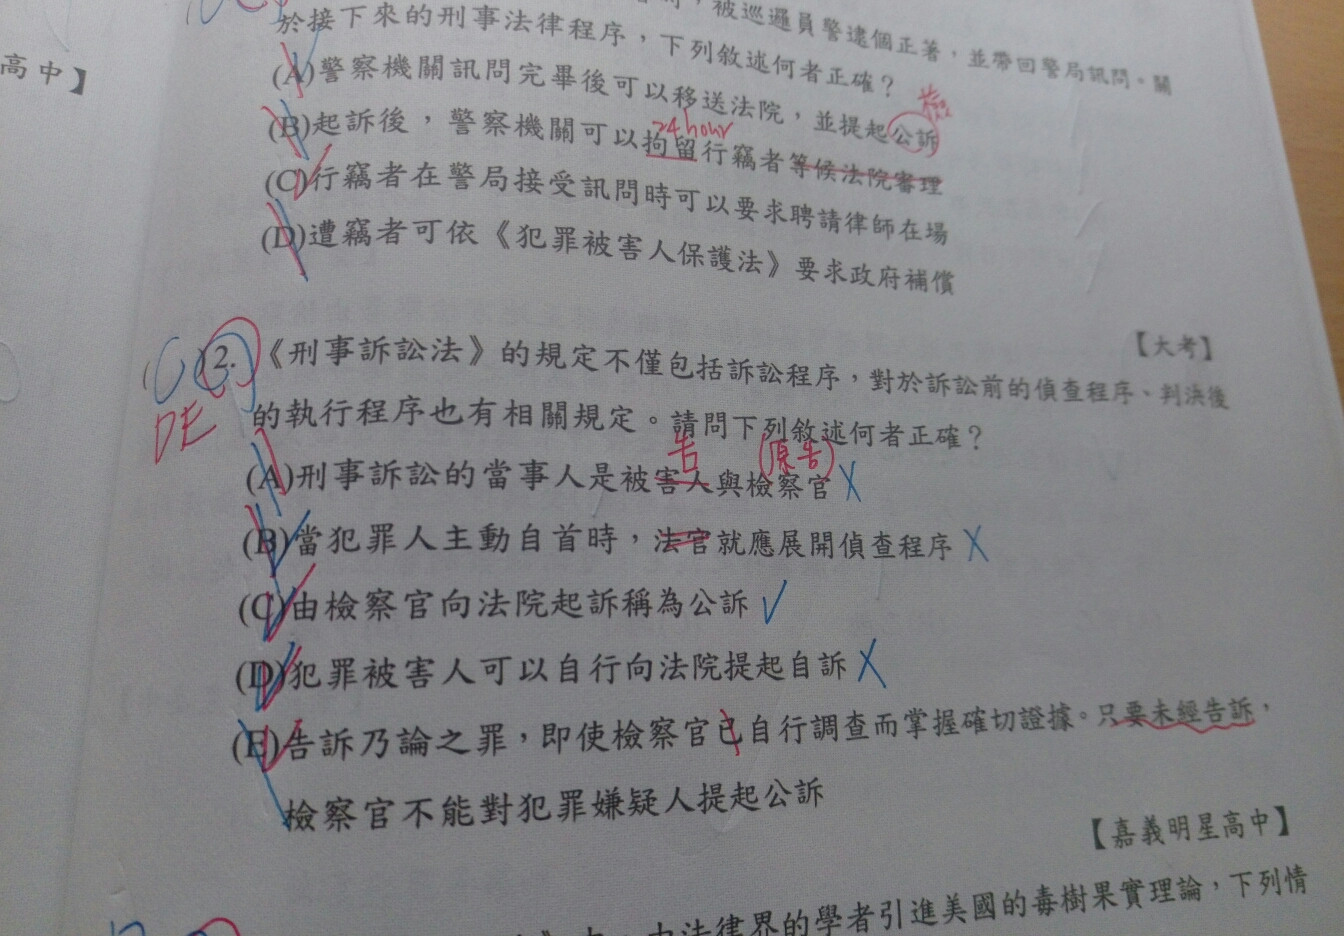 ，被巡邏員警逮個正著，並帶回警局訊問。關
於接下來的刑事法律程序，下列敘述何者正確？
高中】
檢
(A)警察機關訊問完畢後可以移送法院，並提起公訴
24hour
(B)起訴後，警察機關可以拘留行竊者等候法院審理
(C)行竊者在警局接受訊問時可以要求聘請律師在場
(D)遭竊者可依《犯罪被害人保護法》要求政府補償
【大考】
2.《刑事訴訟法》的規定不僅包括訴訟程序，對於訴訟前的偵查程序、判決後
DE
的執行程序也有相關規定。請問下列敘述何者正確？
告 (原告)
(A)刑事訴訟的當事人是被害人與檢察官 X
(B)當犯罪人主動自首時，法官就應展開偵查程序 X
(C)由檢察官向法院起訴稱為公訴 ✓
(D)犯罪被害人可以自行向法院提起自訴 X
(E)告訴乃論之罪，即使檢察官已自行調查而掌握確切證據。只要未經告訴，
檢察官不能對犯罪嫌疑人提起公訴
【嘉義明星高中】
法律界的學者引進美國的毒樹果實理論，下列情